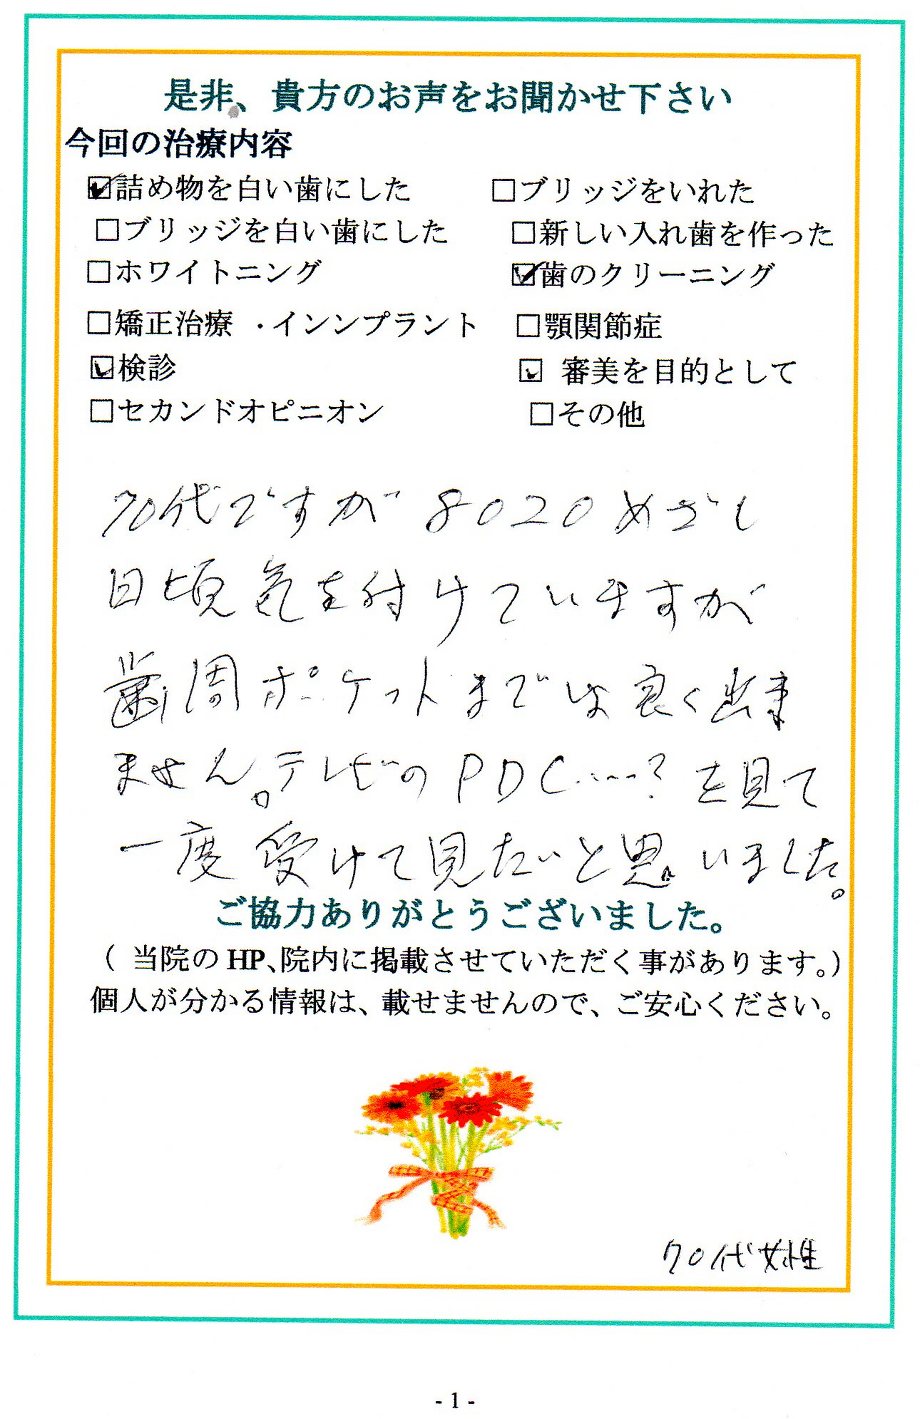 是非、貴方のお声をお聞かせ下さい
今回の治療内容
☑詰め物を白い歯にした □ブリッジをいれた
□ブリッジを白い歯にした □新しい入れ歯を作った
□ホワイトニング ☑歯のクリーニング
□矯正治療 ・インンプラント □顎関節症
☑検診 ☑ 審美を目的として
□セカンドオピニオン □その他
70代ですが8020めざし
日頃気を付けていますが
歯周ポケットまでは良く出来
ません。テレビのPDC……?を見て
一度受けて見たいと思いました。
ご協力ありがとうございました。
( 当院のHP、院内に掲載させていただく事があります。)
個人が分かる情報は、載せませんので、ご安心ください。
70代女性
- 1 -